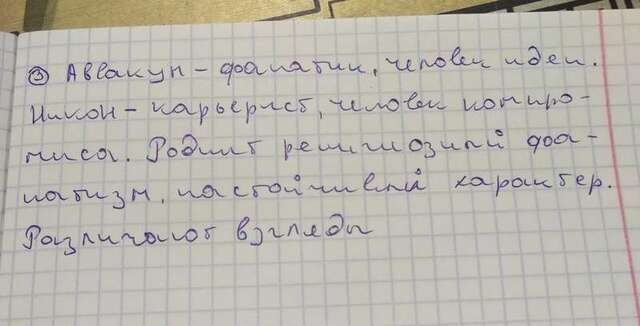 ③ Аввакум – фанатик, человек идеи.
Никон – карьерист, человек компро-
мисса. Роднит религиозный фа-
натизм, настойчивый характер.
Различают взгляды